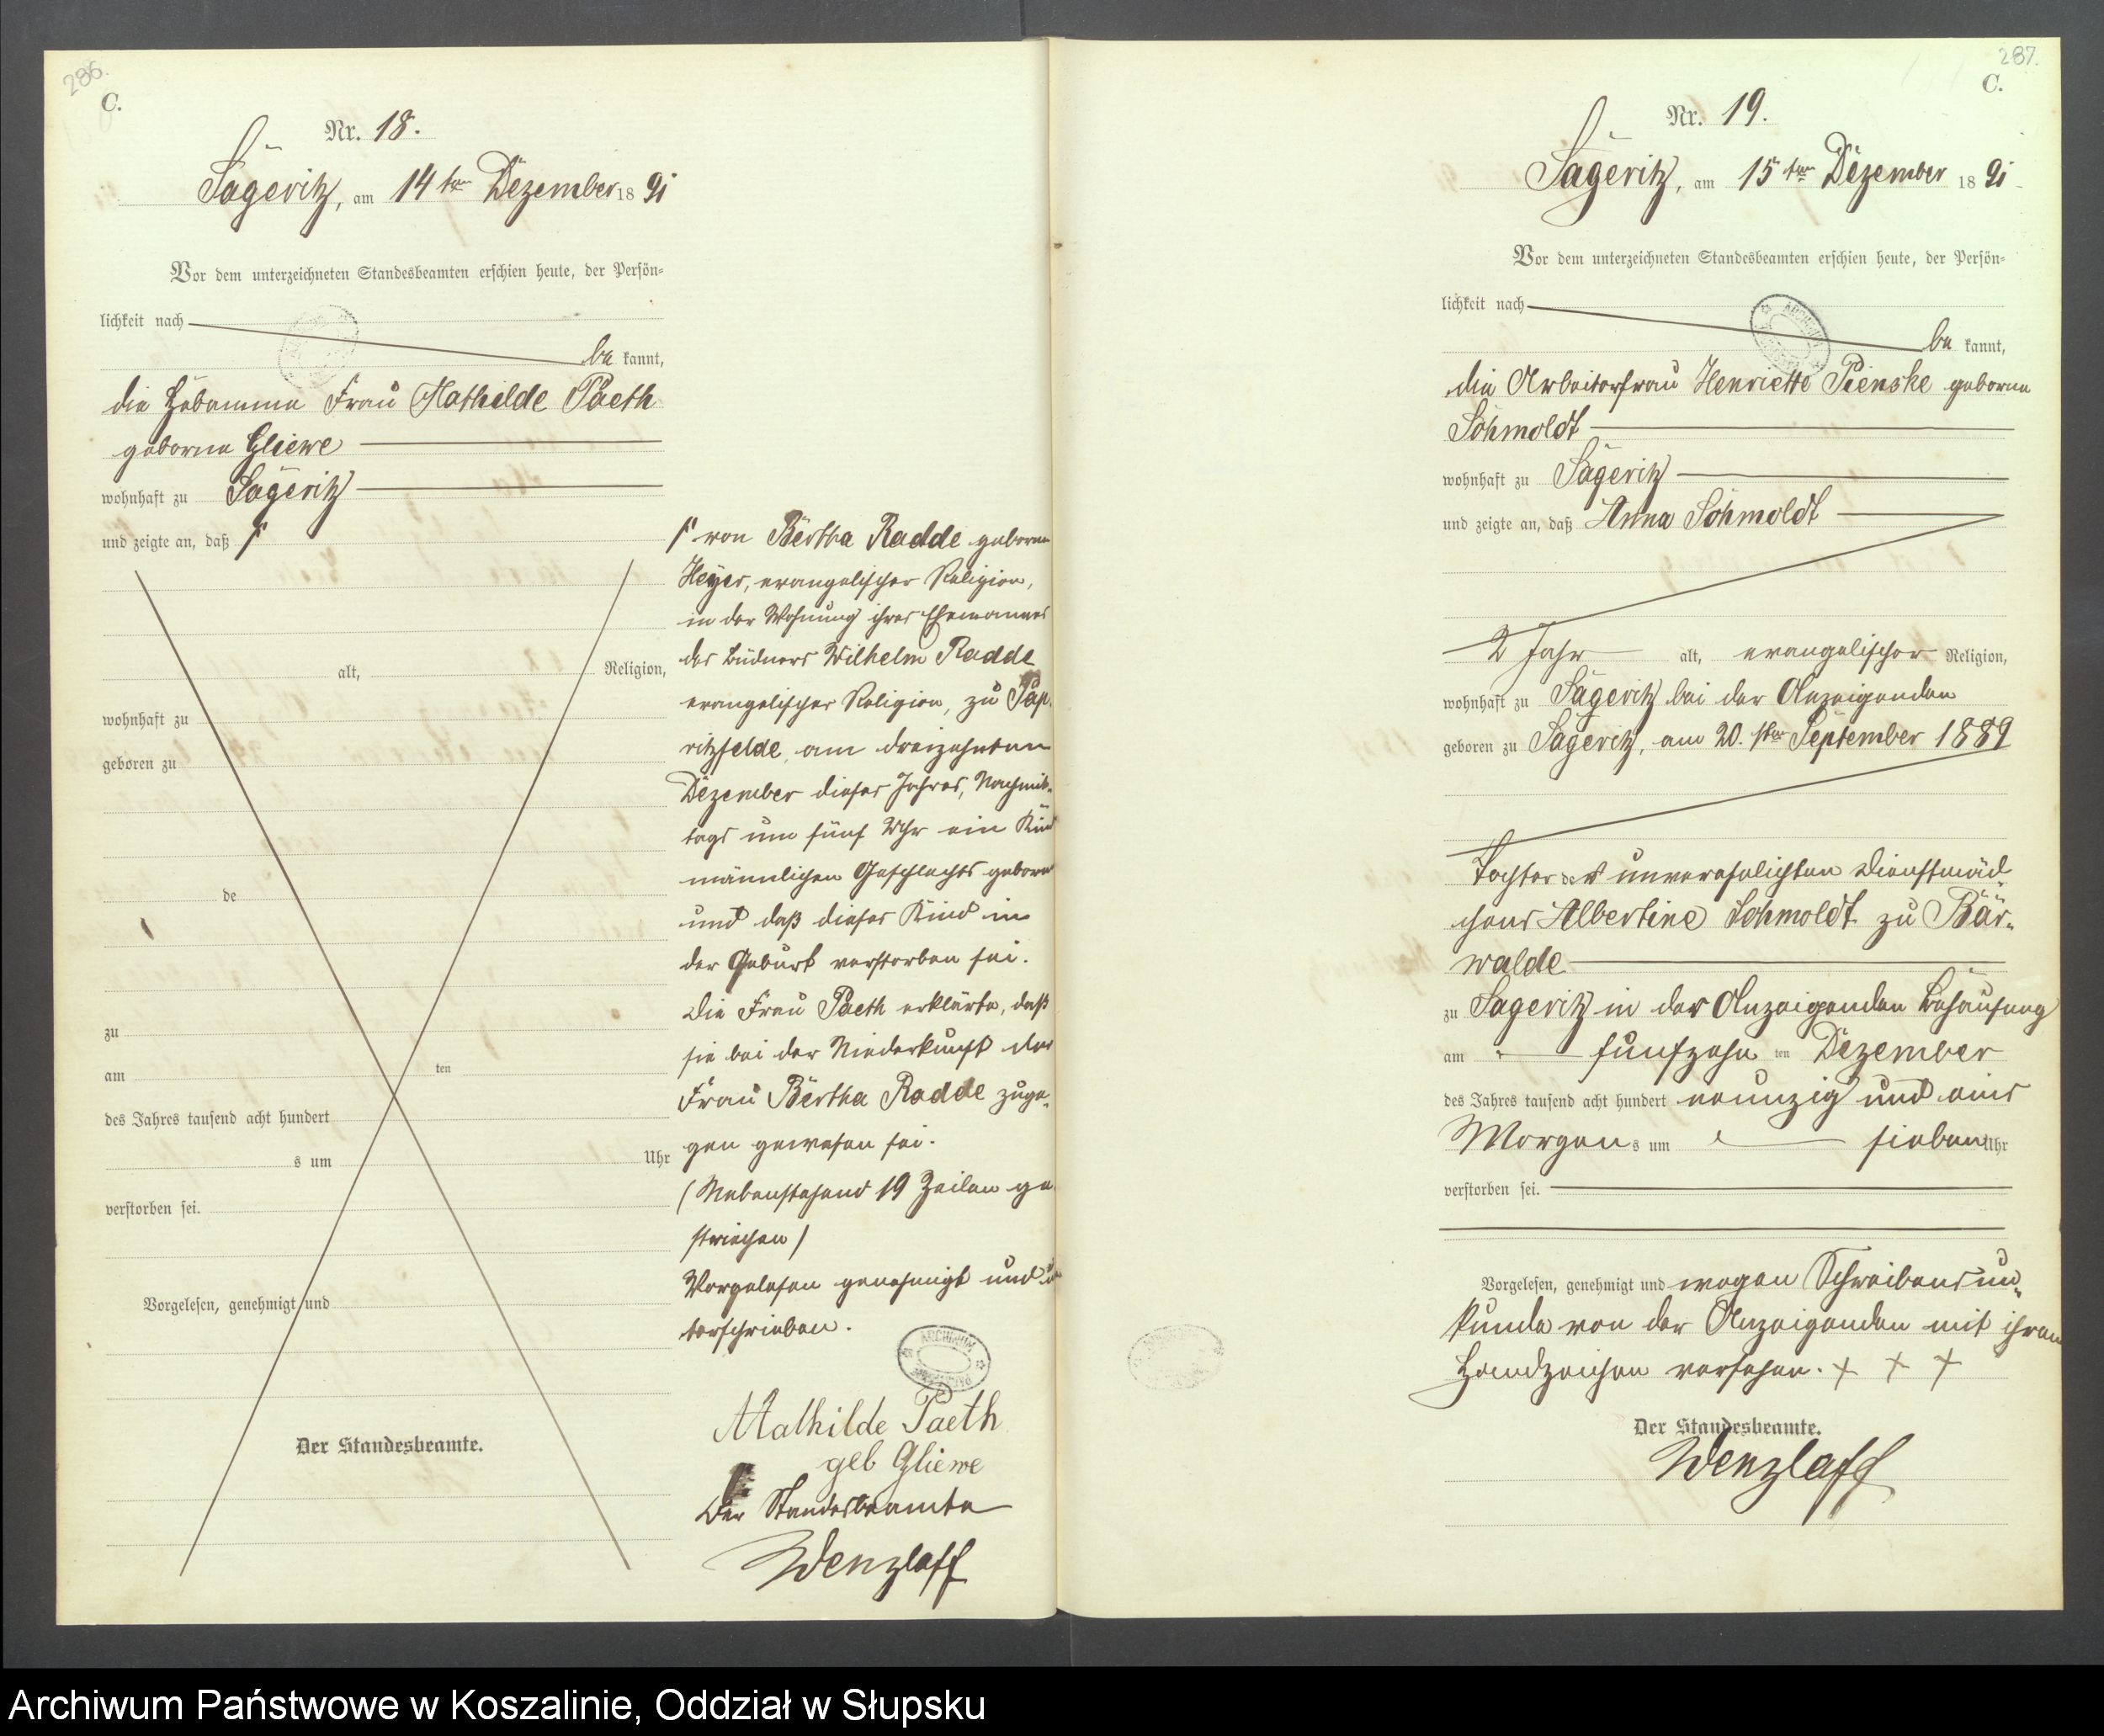 286.
C.
Nr. 18.
Sageritz, am 14ten Dezember 1891
Vor dem unterzeichneten Standesbeamten erschien heute, der Persön=
lichkeit nach
be kannt,
die Hebamme Frau Mathilde Paeth
geborne Gliewe
wohnhaft zu Sageritz
und zeigte an, daß
alt, Religion,
wohnhaft zu
geboren zu
de
zu
am ten
des Jahres tausend acht hundert
s um Uhr
verstorben sei.
Vorgelesen, genehmigt und
Der Standesbeamte.
von Bertha Radde geborne
Heyer, evangelischer Religion,
in der Wohnung ihres Ehemannes
des Büdners Wilhelm Radde
evangelischer Religion, zu Pap-
ritzfelde, am dreizehnten
Dezember dieses Jahres, Nachmit-
tags um fünf Uhr ein Kind
männlichen Geschlechts geboren
und daß dieses Kind in
der Geburt verstorben sei.
Die Frau Paeth erklärte, daß
sie bei der Niederkunft der
Frau Bertha Radde zuge-
gen gewesen sei.
(Nebenstehend 19 Zeilen ge
strichen)
Vorgelesen genehmigt und un
terschrieben.
ARCHIWUM
Mathilde Paeth
geb Gliewe
Der Standesbeamte
Wenzlaff
287.
C.
Nr. 19.
Sageritz, am 15ten Dezember 1891
Vor dem unterzeichneten Standesbeamten erschien heute, der Persön=
lichkeit nach
be kannt,
die Arbeiterfrau Henriette Pienske geborne
Schmoldt
wohnhaft zu Sageritz
und zeigte an, daß Anna Schmoldt
2 Jahr alt, evangelischer Religion,
wohnhaft zu Sageritz bei der Anzeigenden
geboren zu Sageritz, am 20. sten September 1889
Tochter der unverehelichten Dienstmäd-
chens Albertine Schmoldt zu Bär-
walde
zu Sageritz in der Anzeigenden Behausung
am fünfzehn ten Dezember
des Jahres tausend acht hundert neunzig und eins
Morgens um sieben Uhr
verstorben sei.
Vorgelesen, genehmigt und wegen Schreibensun-
kunde von der Anzeigenden mit ihren
Handzeichen versehen. + + +
Der Standesbeamte.
Wenzlaff
Archiwum Państwowe w Koszalinie, Oddział w Słupsku